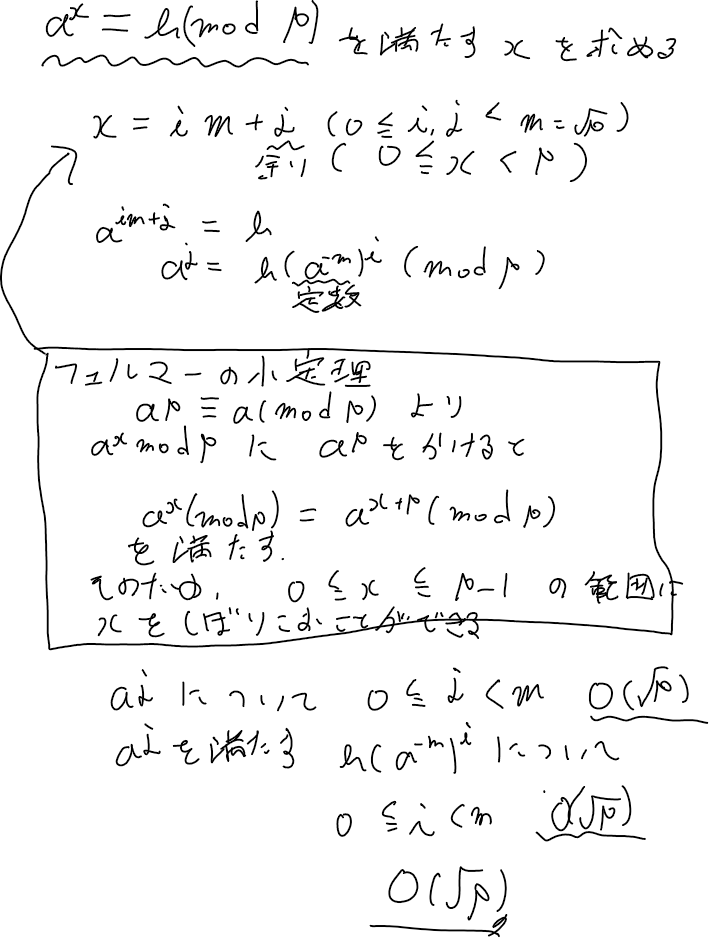 a^x = h (mod p) を満たす x を求める
x = i m + j (0 ≦ i, j < m = √p)
余り ( 0 ≦ x < p )
a^{im+j} = h
a^j = h (a^{-m})^i (mod p)
定数
フェルマーの小定理
a^p ≡ a (mod p) より
a^x mod p に a^p をかけると
a^x (mod p) = a^{x+p} (mod p)
を満たす.
そのため, 0 ≦ x ≦ p-1 の範囲に
x をしぼりこむことができる
a^j について 0 ≦ j < m O(√p)
a^j を満たす h(a^{-m})^i について
0 ≦ i < m O(√p)
O(√p)